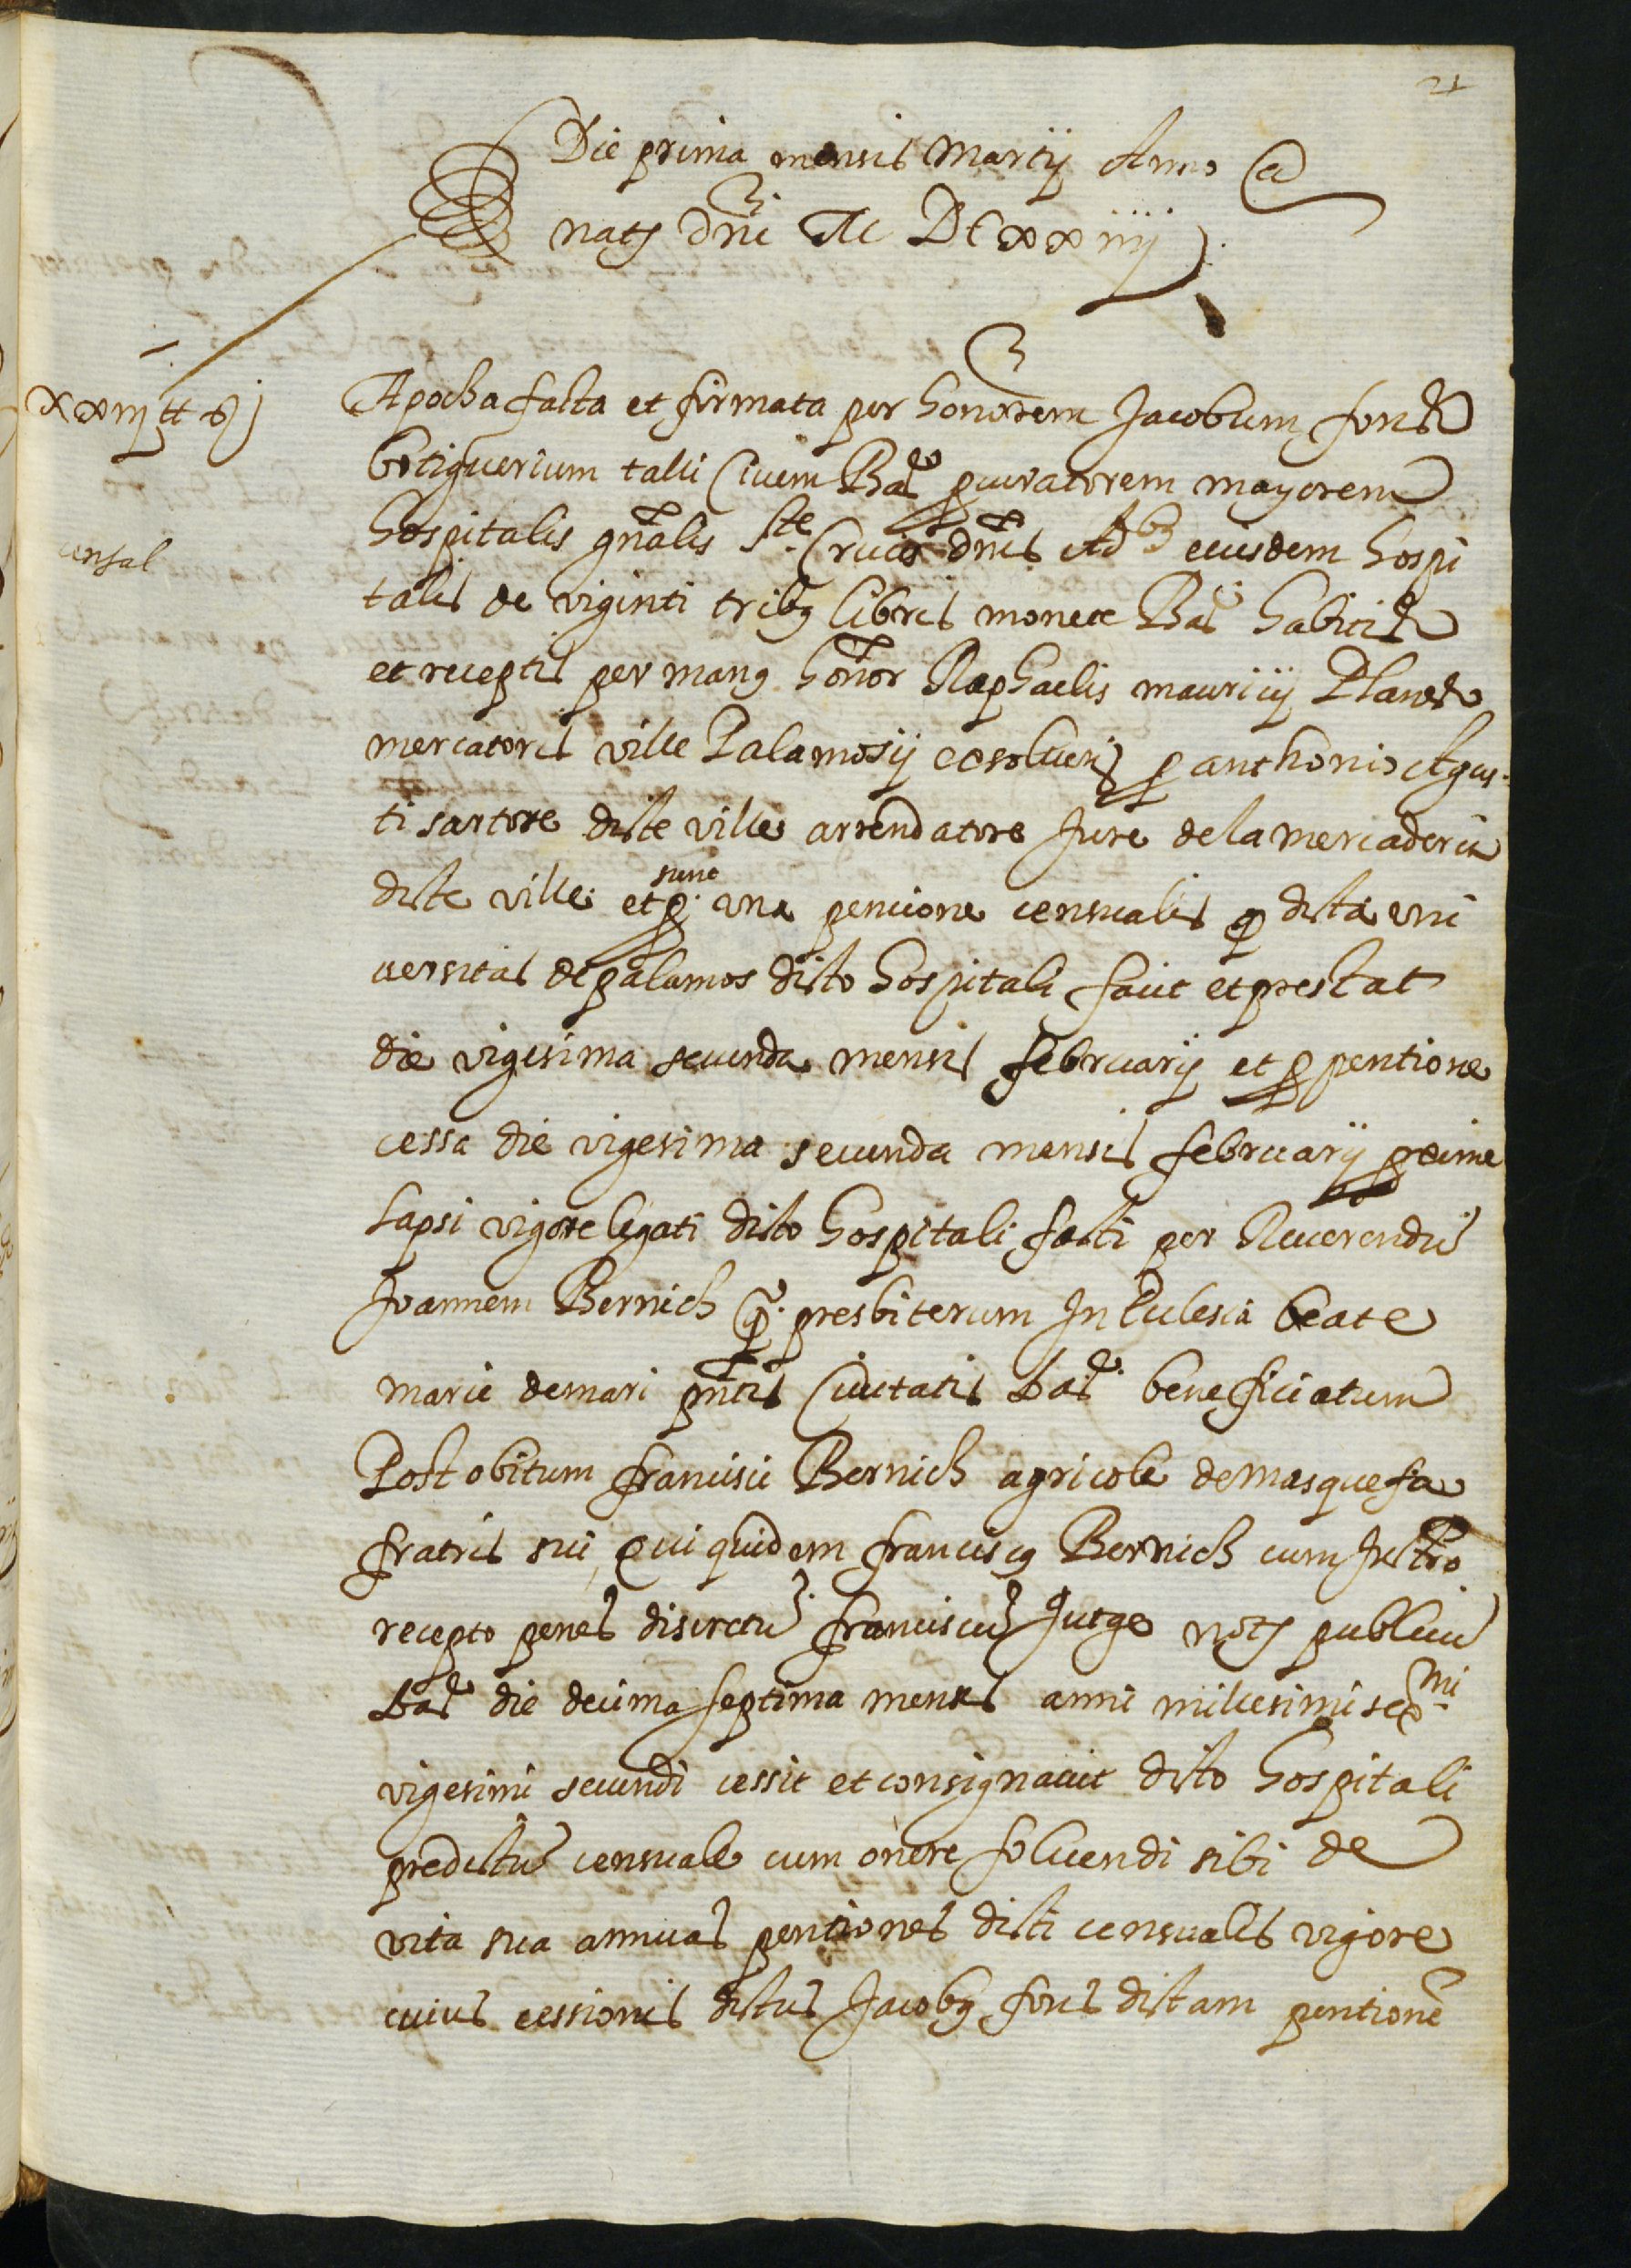 21
Die prima mensis Martij Anno a
natj dni M DCxxiiij
xxiij ₶ ß
censal
Apocha facta et firmata per honorem Jacobum fons
botiguerium talli Civem Bar procuratorem mayorem
hospitalis gnalis Ste Crucis dnis Adbz eiusdem hospi
talis de viginti tribus libris monete Bar habitis
et receptis per manus honor Raphaelis mauricij Planes
mercatoris ville Palamosij exsoluentis pro anthonio Agus-
ti sartore dicte ville arrendatore Jure de la mercaderia
dicte ville et sunt pro una pencione censualis quod dicta uni
versitas de palamos dicto hospitali facit et prestat
die vigesima secunda mensis februarij et pro pentione
cessa die vigesima secunda mensis februarij proxime
lapsi vigore legati dicto hospitali facti per Reverendu
Joannem Bernich qº presbiterum In Eclesia beate
marie de mari pntis Civitatis Bar beneficiatum
Post obitum francisci Bernich agricole de masquefa
fratris sui, qui quidem franciscus Bernich cum Instro
recepto penes discretu franciscu Jutge notj publicu
Bar die decima septima mensis anni millesimi sexmi
vigesimi secundi cessit et consignavit dicto hospitali
predictu censuale cum onere solvendi sibi de
vita sua annuas pentiones dicti censualis vigore
cuius cessionis dictus Jacobus fons dictam pentione